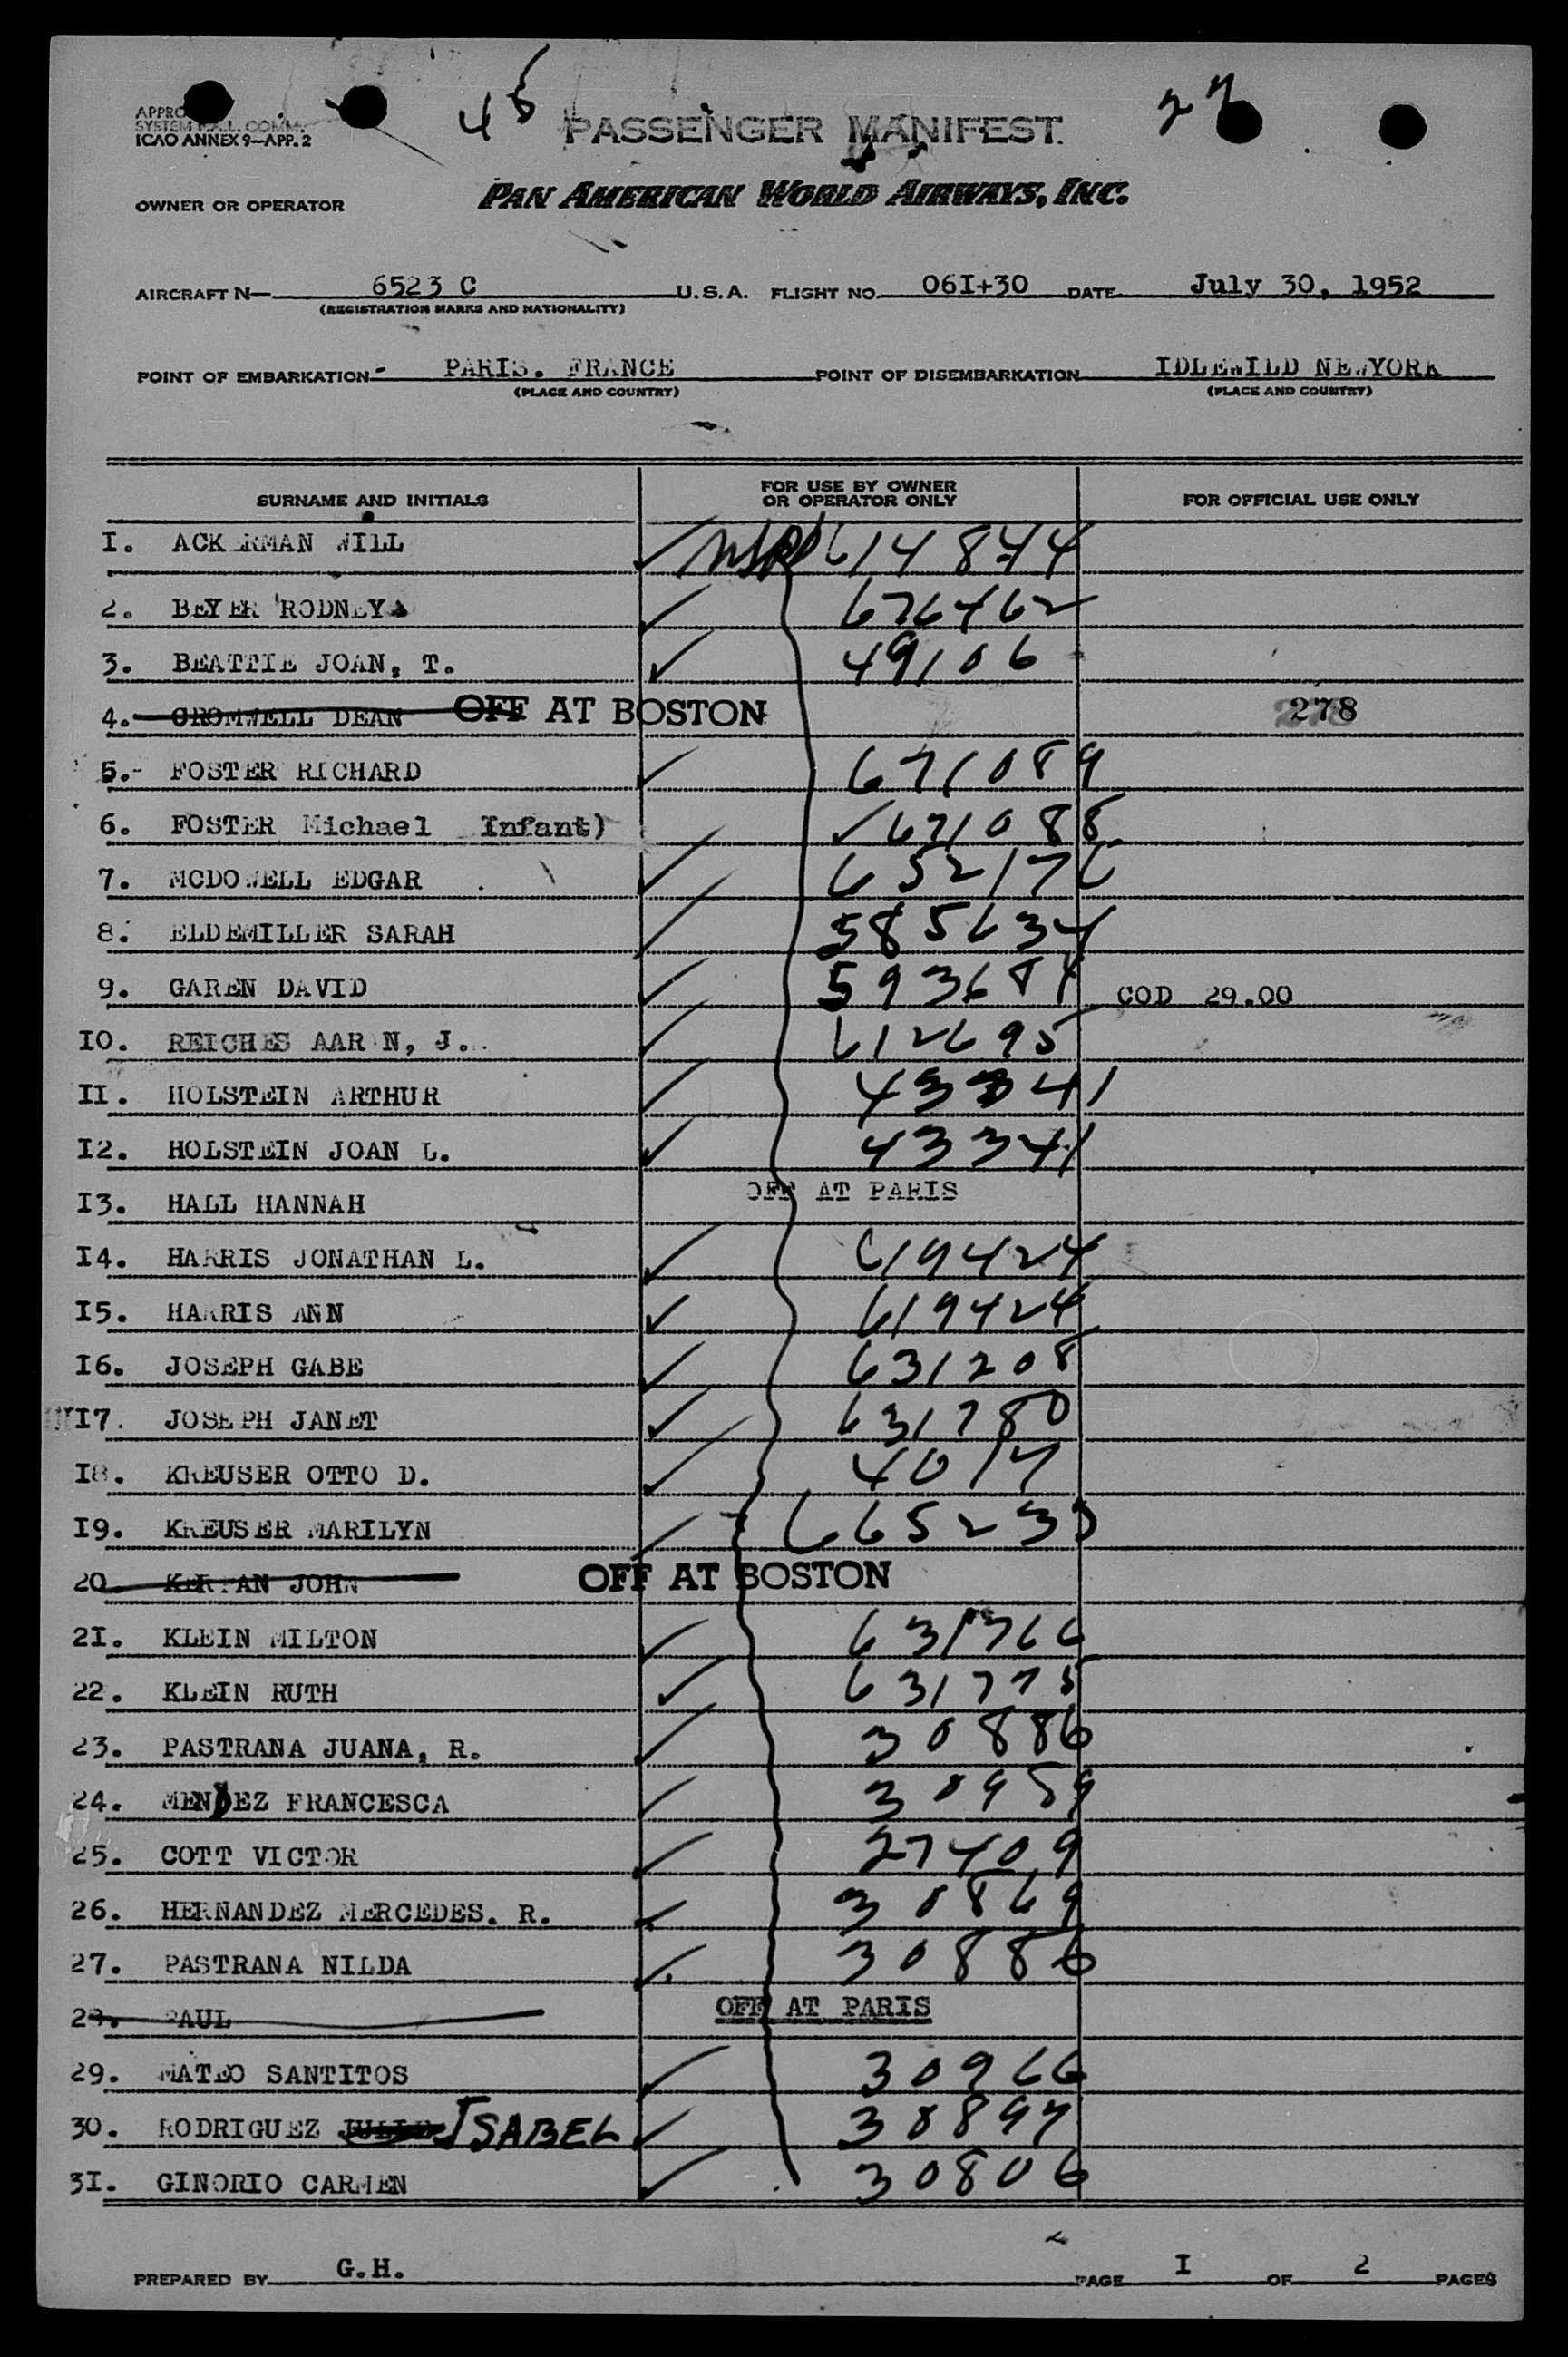 45
27
APPRO
SYSTEM MAIL. COMM.
ICAO ANNEX 9—APP. 2
PASSENGER MANIFEST
OWNER OR OPERATOR PAN AMERICAN WORLD AIRWAYS, INC.
AIRCRAFT N— 6523 C U.S.A. FLIGHT NO. 06I+30 DATE July 30, 1952
(REGISTRATION MARKS AND NATIONALITY)
POINT OF EMBARKATION - PARIS. FRANCE POINT OF DISEMBARKATION IDLEWILD NEWYORK
(PLACE AND COUNTRY) (PLACE AND COUNTRY)
SURNAME AND INITIALS FOR USE BY OWNER OR OPERATOR ONLY FOR OFFICIAL USE ONLY
I. ACKERMAN WILL 614844
2. BEYER RODNEY 676462
3. BEATTIE JOAN, T. 49106
4. CROMWELL DEAN OFF AT BOSTON 278
5.- FOSTER RICHARD 671089
6. FOSTER Michael Infant) 671088
7. MCDOWELL EDGAR 652176
8. ELDEMILLER SARAH 585634
9. GAREN DAVID 593681 COD 29.00
IO. REICHES AARON, J. 612695
II. HOLSTEIN ARTHUR 43341
I2. HOLSTEIN JOAN L. 43341
I3. HALL HANNAH OFF AT PARIS
I4. HARRIS JONATHAN L. 619424
I5. HARRIS ANN 619424
I6. JOSEPH GABE 631208
I7. JOSEPH JANET 631780
I8. KREUSER OTTO D. 4017
I9. KREUSER MARILYN 665235
20. JOHN OFF AT BOSTON
2I. KLEIN MILTON 631766
22. KLEIN RUTH 631775
23. PASTRANA JUANA, R. 30886
24. MENDEZ FRANCESCA 30989
25. COTT VICTOR 27409
26. HERNANDEZ MERCEDES. R. 30869
27. PASTRANA NILDA 30886
28. PAUL OFF AT PARIS
29. MATEO SANTITOS 30966
30. RODRIGUEZ ISABEL 30897
3I. GINORIO CARMEN 30806
PREPARED BY G.H. PAGE I OF 2 PAGES